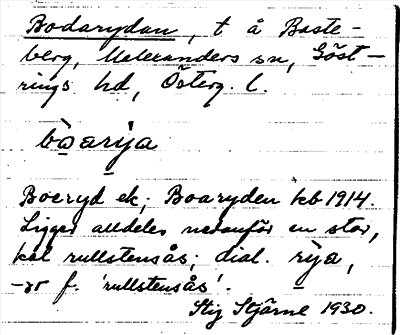 Bodarydan, t å Baste-
berg, Malexanders sn, Göst-
rings hd, Österg. l.
bo̠ari̠ya
Boeryd ek; Boaryden kb 1914.
Ligger alldeles nedanför en stor,
kal rullstensås; dial. rẏa,
-or f. 'rullstensås'.
Stig Stjärne 1930.